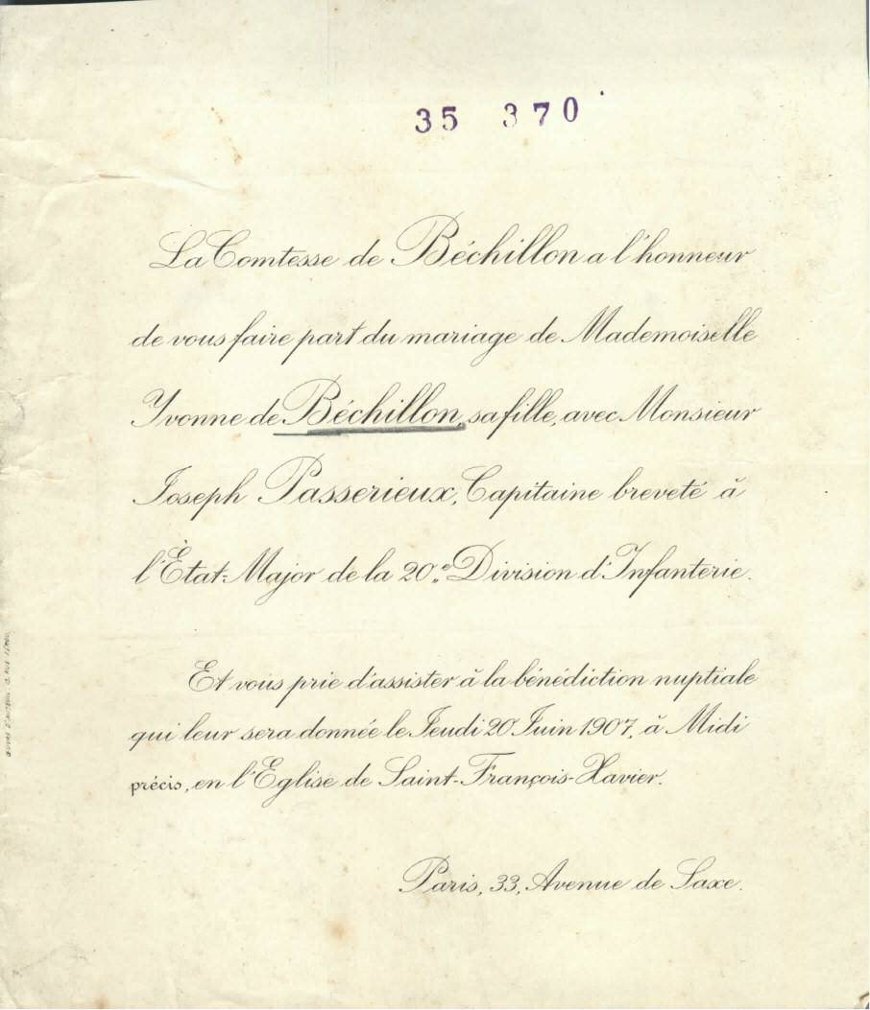 35 370
La Comtesse de Béchillon a l'honneur
de vous faire part du mariage de Mademoiselle
Yvonne de Béchillon, sa fille, avec Monsieur
Joseph Passerieux, Capitaine breveté à
l'État-Major de la 20.e Division d'Infanterie.
Et vous prie d'assister à la bénédiction nuptiale
qui leur sera donnée le Jeudi 20 Juin 1907, à Midi
précis, en l'Eglise de Saint-François-Xavier.
Paris, 33, Avenue de Saxe.